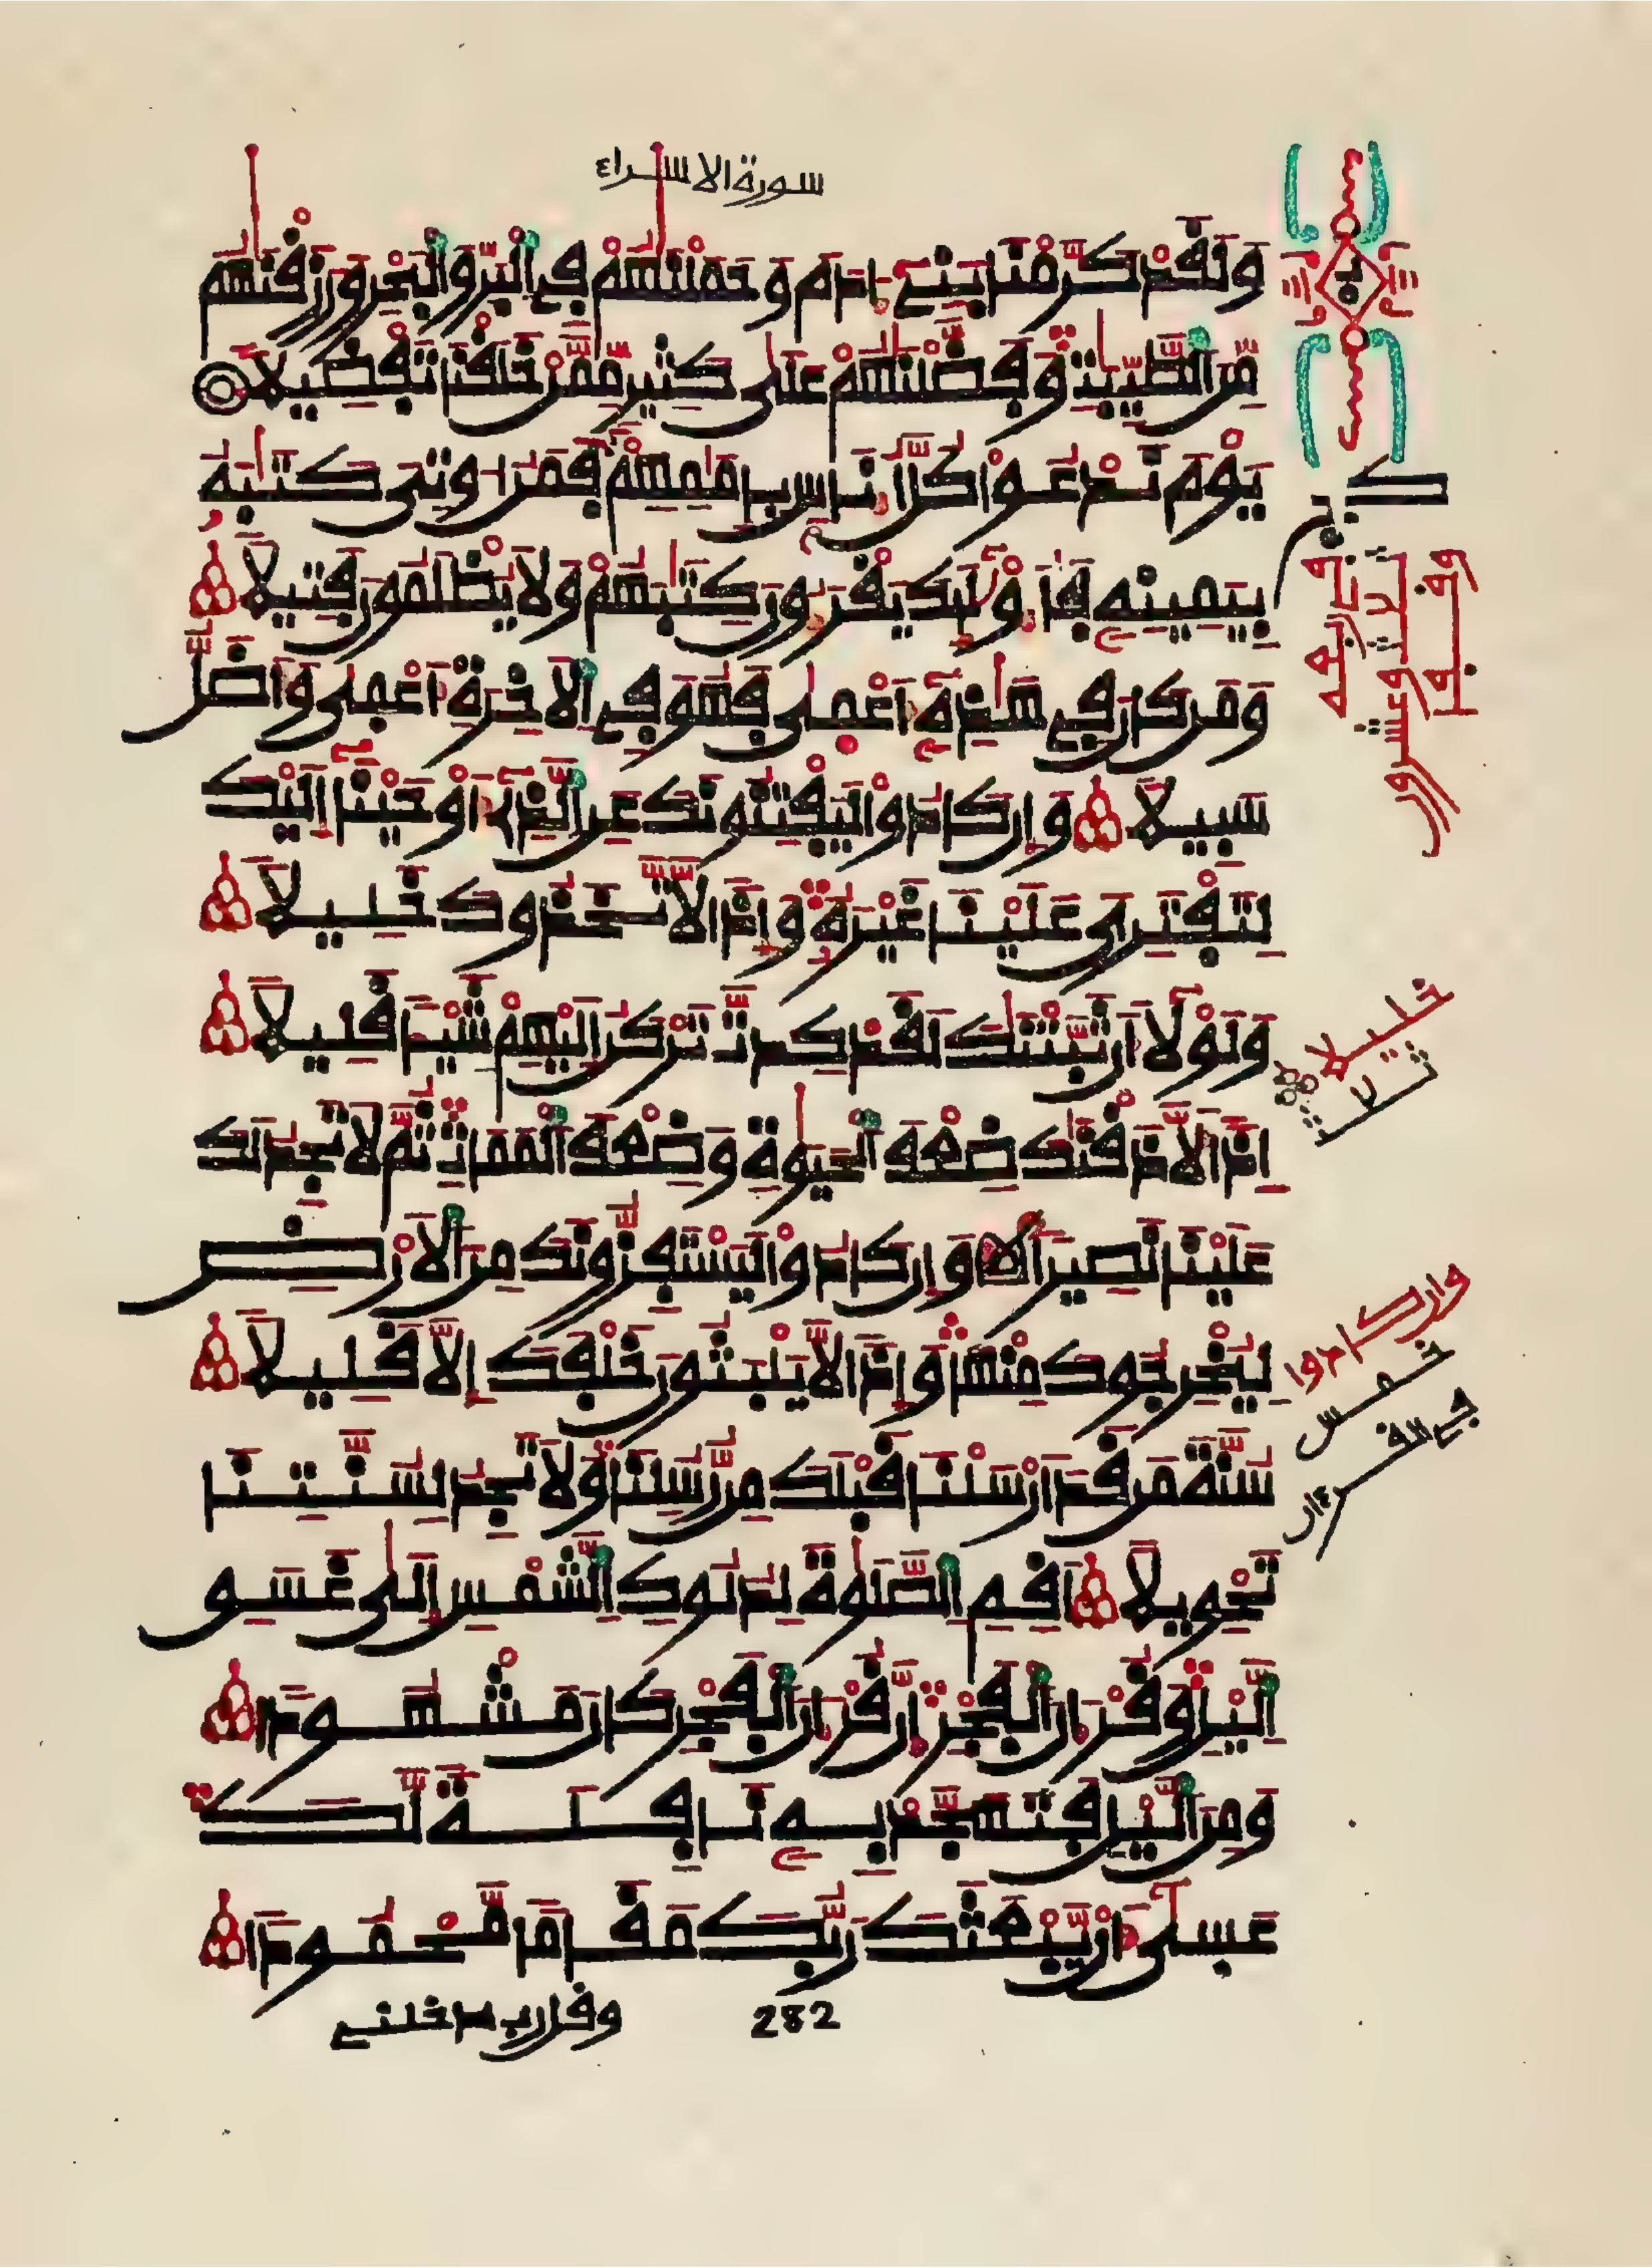 سورة الاسراء
وَلَقَدْ كَرَّمْنَا بَنِےٓ ءَادَمَ وَحَمَلْنَٰهُمْ فِے اِ۬لْبَرِّ وَالْبَحْرِ وَرَزَقْنَٰهُم
مِّنَ اَ۬لطَّيِّبَٰتِ وَفَضَّلْنَٰهُمْ عَلَىٰ كَثِيرٖ مِّمَّنْ خَلَقْنَا تَفْضِيلاٗ
يَوْمَ نَدْعُواْ كُلَّ أُنَاسِۢ بِإِمَٰمِهِمْ فَمَنُ ا۟وتِيَ كِتَٰبَهُۥ
بِيَمِينِهِۦ فَأُوْلَٰٓئِكَ يَقْرَءُونَ كِتَٰبَهُمْ وَلَا يُظْلَمُونَ فَتِيلاٗ
وَمَن كَانَ فِے هَٰذِهِۦٓ أَعْمَىٰ فَهُوَ فِے اِ۬لَاخِرَةِ أَعْمَىٰ وَأَضَلُّ
سَبِيلاٗ وَإِن كَادُواْ لَيَفْتِنُونَكَ عَنِ اِ۬لذِےٓ أَوْحَيْنَآ إِلَيْكَ
لِتَفْتَرِيَ عَلَيْنَا غَيْرَهُۥ وَإِذاٗ لَّاتَّخَذُوكَ خَلِيلاٗ
وَلَوْلَآ أَن ثَبَّتْنَٰكَ لَقَدْ كِدتَّ تَرْكَنُ إِلَيْهِمْ شَيْـٔاٗ قَلِيلاً
اِذاٗ لَّأَذَقْنَٰكَ ضِعْفَ اَ۬لْحَيَوٰةِ وَضِعْفَ اَ۬لْمَمَاتِ ثُمَّ لَا تَجِدُ لَكَ
عَلَيْنَا نَصِيراٗ وَإِن كَادُواْ لَيَسْتَفِزُّونَكَ مِنَ اَ۬لَارْضِ
لِيُخْرِجُوكَ مِنْهَا وَإِذاٗ لَّا يَلْبَثُونَ خَلْفَكَ إِلَّا قَلِيلاٗ
سُنَّةَ مَن قَدَ اَرْسَلْنَا قَبْلَكَ مِن رُّسُلِنَا وَلَا تَجِدُ لِسُنَّتِنَا
تَحْوِيلاً اَقِمِ اِ۬لصَّلَوٰةَ لِدُلُوكِ اِ۬لشَّمْسِ إِلَىٰ غَسَقِ
اِ۬ليْلِ وَقُرْءَانَ اَ۬لْفَجْرِ إِنَّ قُرْءَانَ اَ۬لْفَجْرِ كَانَ مَشْهُوداٗ
وَمِنَ اَ۬ليْلِ فَتَهَجَّدْ بِهِۦ نَافِلَةٗ لَّكَ
عَسَىٰٓ أَنْ يَّبْعَثَكَ رَبُّكَ مَقَاماٗ مَّحْمُوداٗ
وقل رب ادخلنے
282
خليلا
ثلاث
وان كادوا
خمس